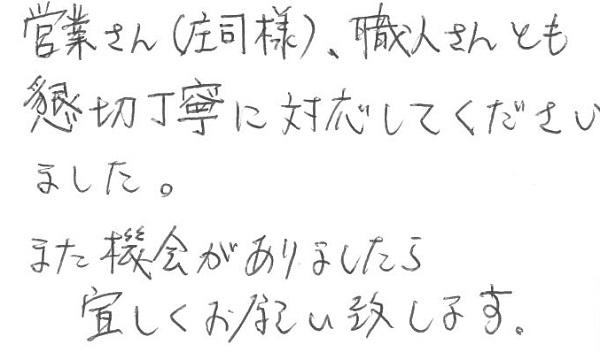 営業さん(庄司様)、職人さんとも
懇切丁寧に対応してください
ました。
また機会がありましたら
宜しくお願い致します。